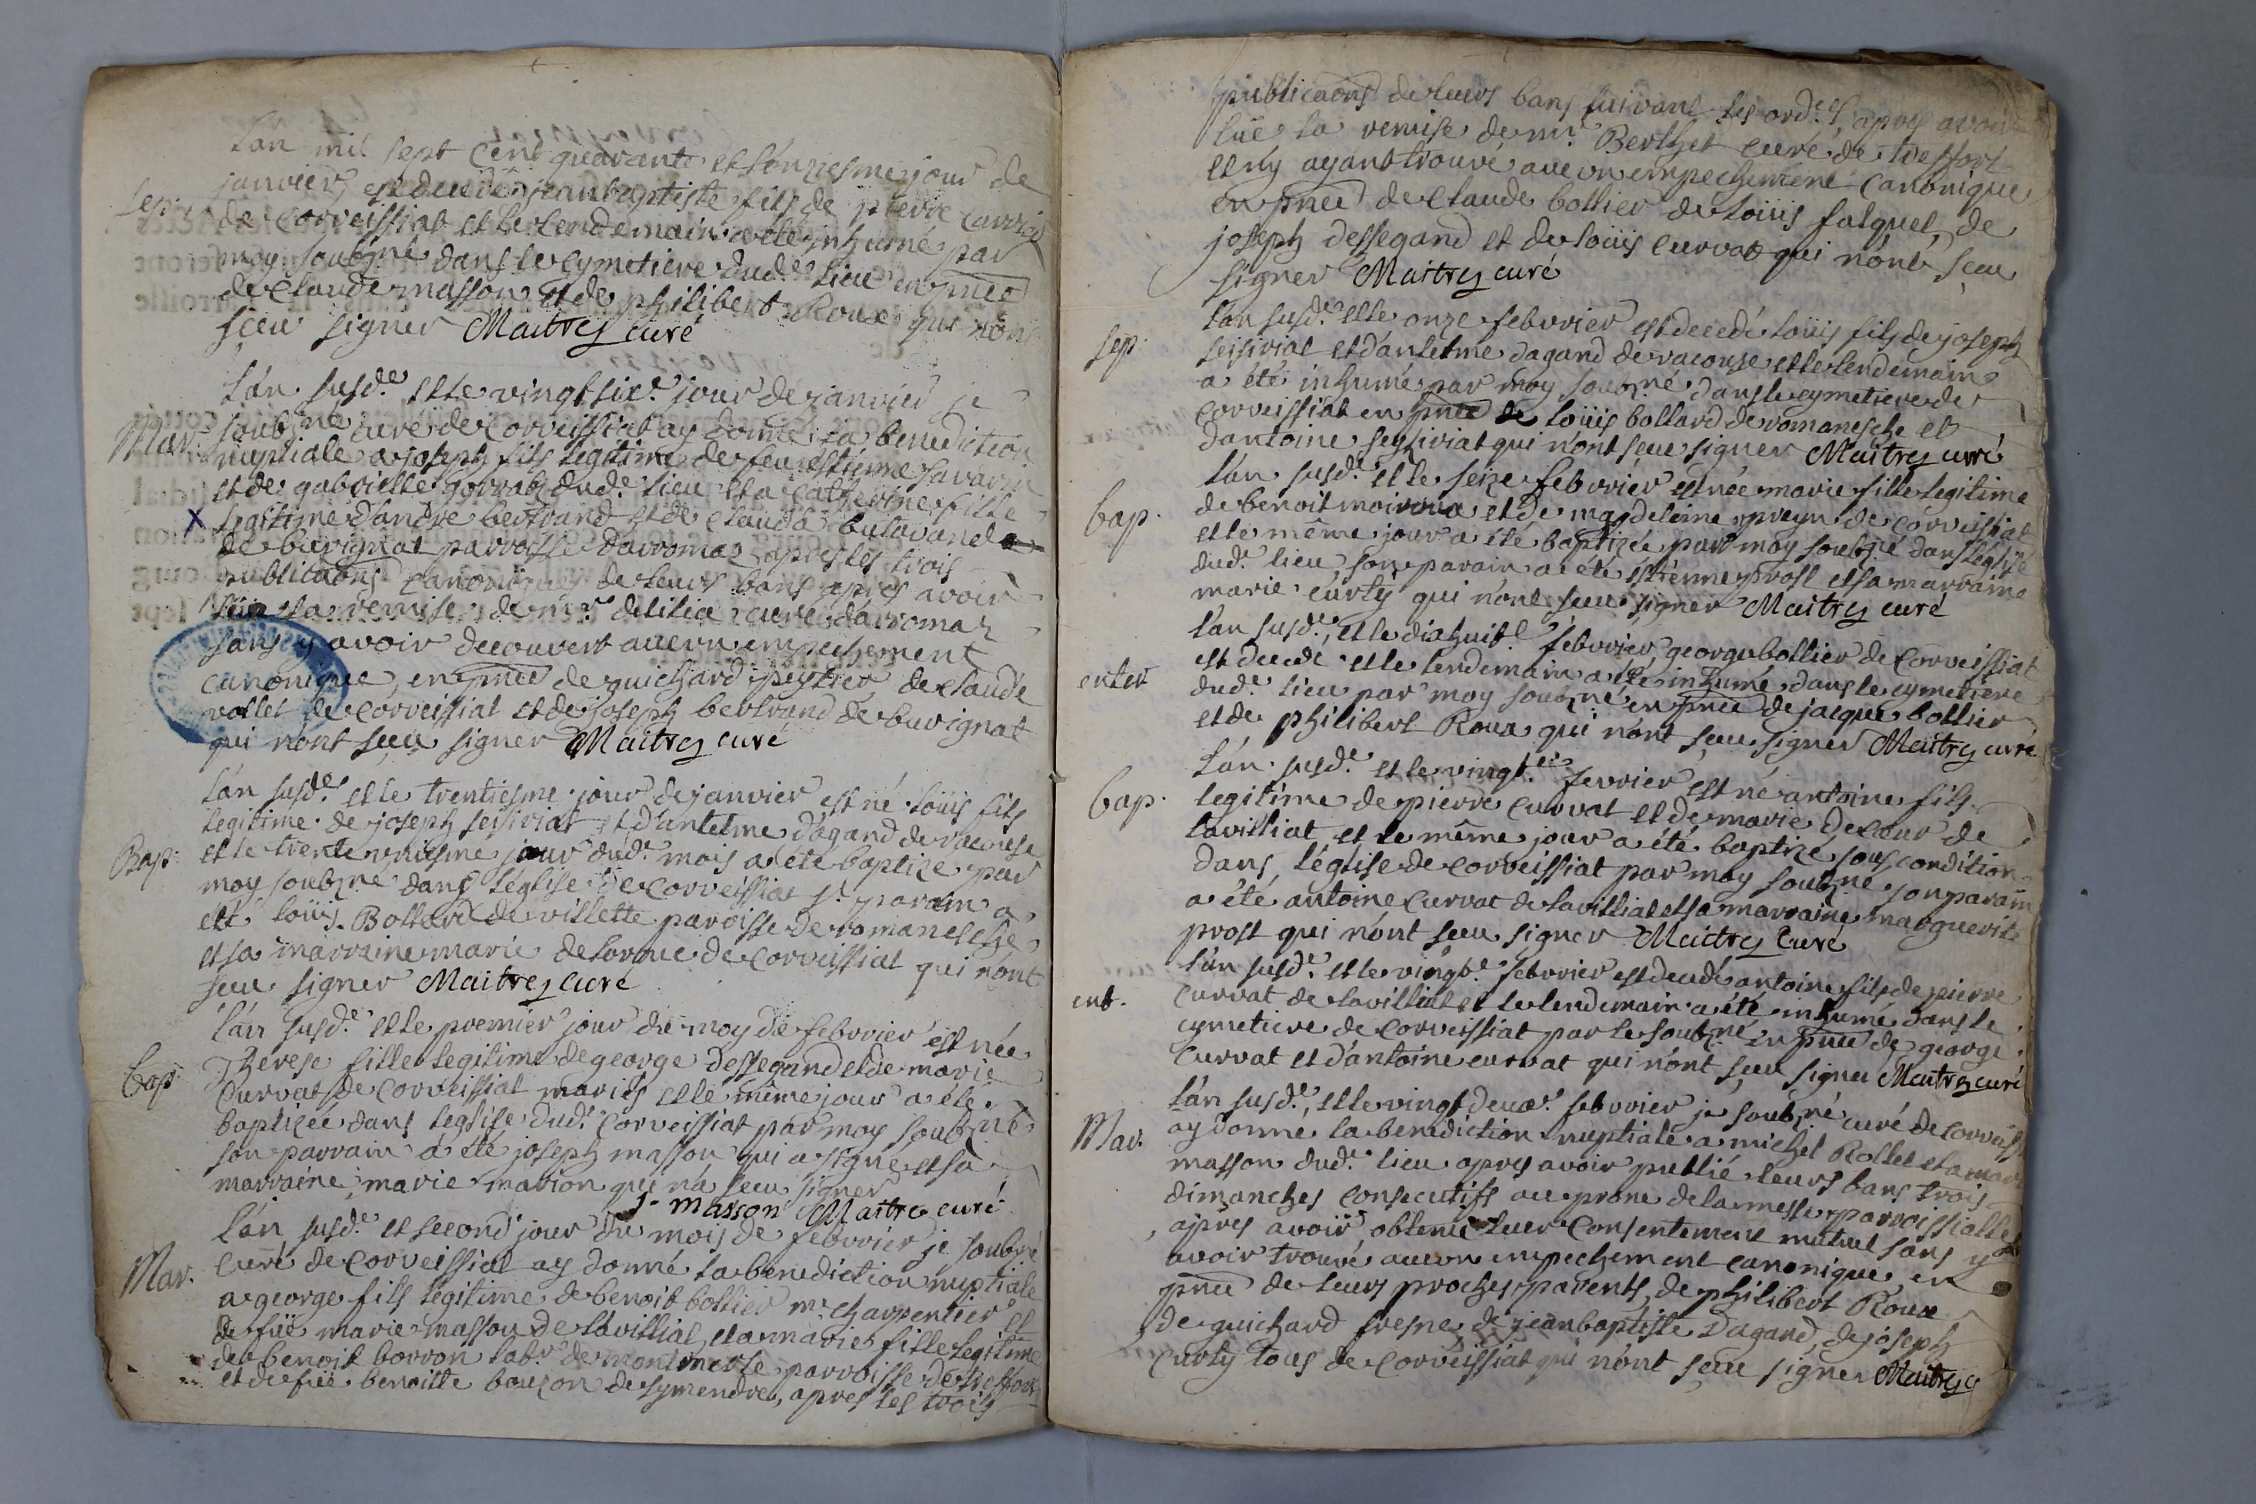 L'an mil sept cent quarante et l'onziesme jour de
janvier est decedé jean baptiste fils de pierre
Sep. de Corveissiat et le lendemain a été inhumé par
moy soubzné dans le cymetiere dud.e lieu en pnce
de Claude masson et de philibert Roux qui n'ont
sceu signer Maitrez curé
L'an susd.e et le vingt six.e jour de janvier je
Mar. soubzné curé de Corveissiat ay donné la benediction
nuptiale a joseph fils legitime de feu estienne savarin
et de gabrielle gorraz dud.e lieu et a Catherine fille
x legitime d'andré bertrand et de clauda bulavand
de burignat parroisse d'arromaz apres les trois
publicaôns canoniques de leurs bans apres avoir
lüe la remise de mr. delilia curé d'arromaz
sans y avoir decouvert aucun empechement
canonique, en pnce de guichard peytier de claude
rollet de Corveissiat et de joseph bertrand de burignat
qui n'ont sceu signer Maitrez curé
L'an susd.e et le trentiesme jour de janvier est né loüis fils
legitime de joseph seisiviat et d'antelme dagand de racouse
Bap. et le trente uniesme jour dud.e mois a été baptizé par
moy soubzné dans l'église de Corveissiat s. parain a
été loüis Bollard de villette paroisse de romanesche
et sa marraine marie delorme de Corveissiat qui n'ont
sceu signer Maitrez curé
L'an susd.e et le premier jour du moy de febvrier est née
Bap. Therese fille legitime de george dessegand et de marie
Curvat de Corveissiat mariés et le même jour a été
baptizée dans leglise dud.e Corveissiat par moy soubzné
son parrain a été joseph masson qui a signé et sa
marraine marie marion qui n'a sceu signer
J. masson Maitre curé
L'an susd.e et second jour du mois de febvrier je soubzné
Mar. Curé de Corveissiat ay donné la benediction nuptiale
a george fils legitime de benoit bollier mr charpentier et
de füe marie masson de lavilliat, et a marie fille legitime
de benoit borron lab.r de montmerle parroisse de treffort
et de füe benoitte bouzon de symendre, apres les trois
publicaôns de leurs bans suivant les ord.es, apres avoir
lüe la remise de mr. Berthet curé de Treffort
et n'y ayant trouvé aucun empechement canonique
en pnce de claude bollier de loüis falquet, de
joseph dessegand et de loüis curvat qui n'ont sceu
signer Maitrez curé
L'an susd.e et le onze febvrier est decedé loüis fils de joseph
sep. seisiviat et d'antelme dagand de racouse et le lendemain
a été inhumé par moy soubzné dans le cymetiere de
Corveissiat en pnce de loüis bollard de romanesche et
d'antoine seysiviat qui n'ont sceu signer Maitrez curé
L'an susd.e et le seize febvrier est née marie fille legitime
bap. de benoit moiroux et de magdeleine preyn de corveissiat
et le même jour a été baptizée par moy soubzné dans leglise
dud.e lieu son parain a été estienne prost et sa marraine
marie curty qui n'ont sceu signer Maitrez curé
L'an susd.e, et le dixhuit.e febvrier george bollier de Corveissiat
enter est decedé et le lendemain a été inhumé dans le cymetiere
dud.e lieu par moy soubzné en pnce de jacque bollier
et de philibert Roux qui n'ont sceu signer Maitrez curé
L'an susd.e et le vingt.e fevrier est né antoine fils
bap. legitime de pierre curvat et de marie decour de
lavilliat et le même jour a été baptizé sous condition
dans l'église de corveissiat par moy soubzné son parain
a été antoine curvat de lavilliat et sa marraine marguerite
prost qui n'ont sceu signer Maitrez Curé
L'an susd.e et le vingt.e febvrier est decedé antoine fils de pierre
ent. curvat de lavilliat et le lendemain a été inhumé dans le
cymetiere de corveissiat par le soubzné en pnce de george
curvat et d'antoine curvat qui n'ont sceu signer Maitrez curé
L'an susd.e, et le vingt deux.e febvrier je soubzné curé de corveissiat
Mar. ay donné la benediction nuptiale a michel Rollet et a marie
masson dud.e lieu apres avoir publié leurs bans trois
dimanches consecutifs au prone de la messe parroissialle
apres avoir obtenu leur consentement mutuel sans y
avoir trouvé aucun empechement canonique, en
pnce de leurs proches parents, de philibert Roux
de guichard fresne, de jean baptiste Dagand, de joseph
curty tous de Corveissiat qui n'ont sceu signer Maitrez c